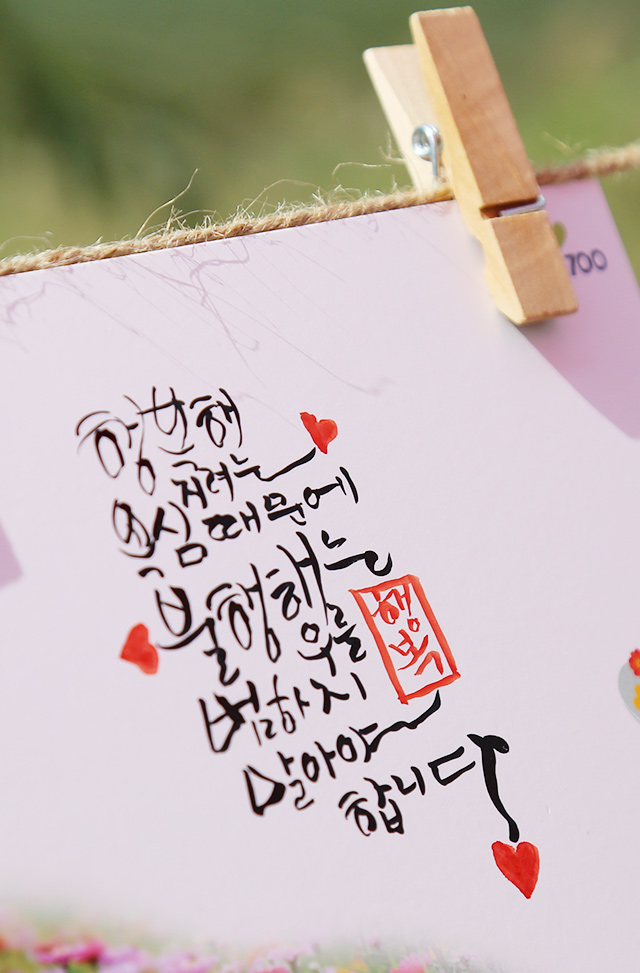 700
행복해
지려는
욕심 때문에
불행해는
우를
범하지
말아야
합니다
행복